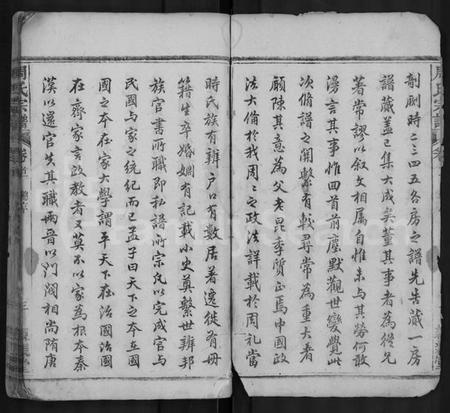 剞劂時二三四五各房之譜先告蕆一房
譜蕆蓋已集大成矣董其事者為從兄
著常謬以叙文相属自惟未与其勞何敢
漫言其事惟四首前塵默觀世變覺此
次脩譜之開繫有較尋常為重大者
顧陳其意為父老昆季質正焉中國政
法大脩於我周周之政法詳載於周礼當
時氏族有辨户口有数居著遷徙有冊
籍生卒婚姻有記載小史奠繫世辨邦
族官書所職即私譜所宗凡以完成官与
民國与家之统紀而已孟子曰天下之本在國
國之本在家大學謂平天下在治國治國
在齊家言政教者又莫不以家為根本秦
漢以還官失其職両晋以門閥相尚隋唐
周氏宗譜
卷首